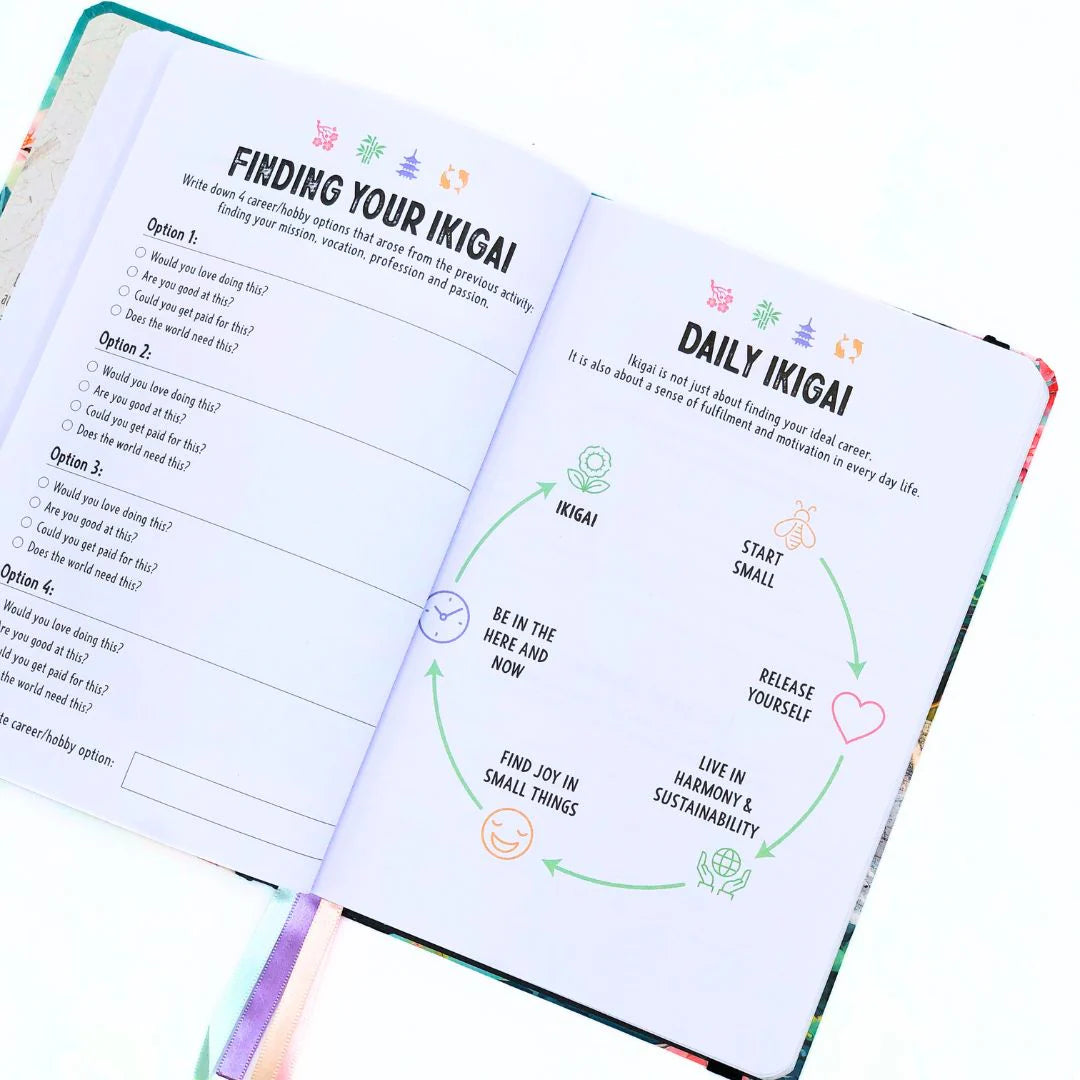 FINDING YOUR IKIGAI
Write down 4 career/hobby options that arose from the previous activity:
finding your mission, vocation, profession and passion.
Option 1:
Would you love doing this?
Are you good at this?
Could you get paid for this?
Does the world need this?
Option 2:
Would you love doing this?
Are you good at this?
Could you get paid for this?
Does the world need this?
Option 3:
Would you love doing this?
Are you good at this?
Could you get paid for this?
Does the world need this?
Option 4:
Would you love doing this?
re you good at this?
uld you get paid for this?
the world need this?
te career/hobby option:
DAILY IKIGAI
Ikigai is not just about finding your ideal career.
It is also about a sense of fulfilment and motivation in every day life.
START
SMALL
RELEASE
YOURSELF
LIVE IN
HARMONY &
SUSTAINABILITY
FIND JOY IN
SMALL THINGS
BE IN THE
HERE AND
NOW
IKIGAI